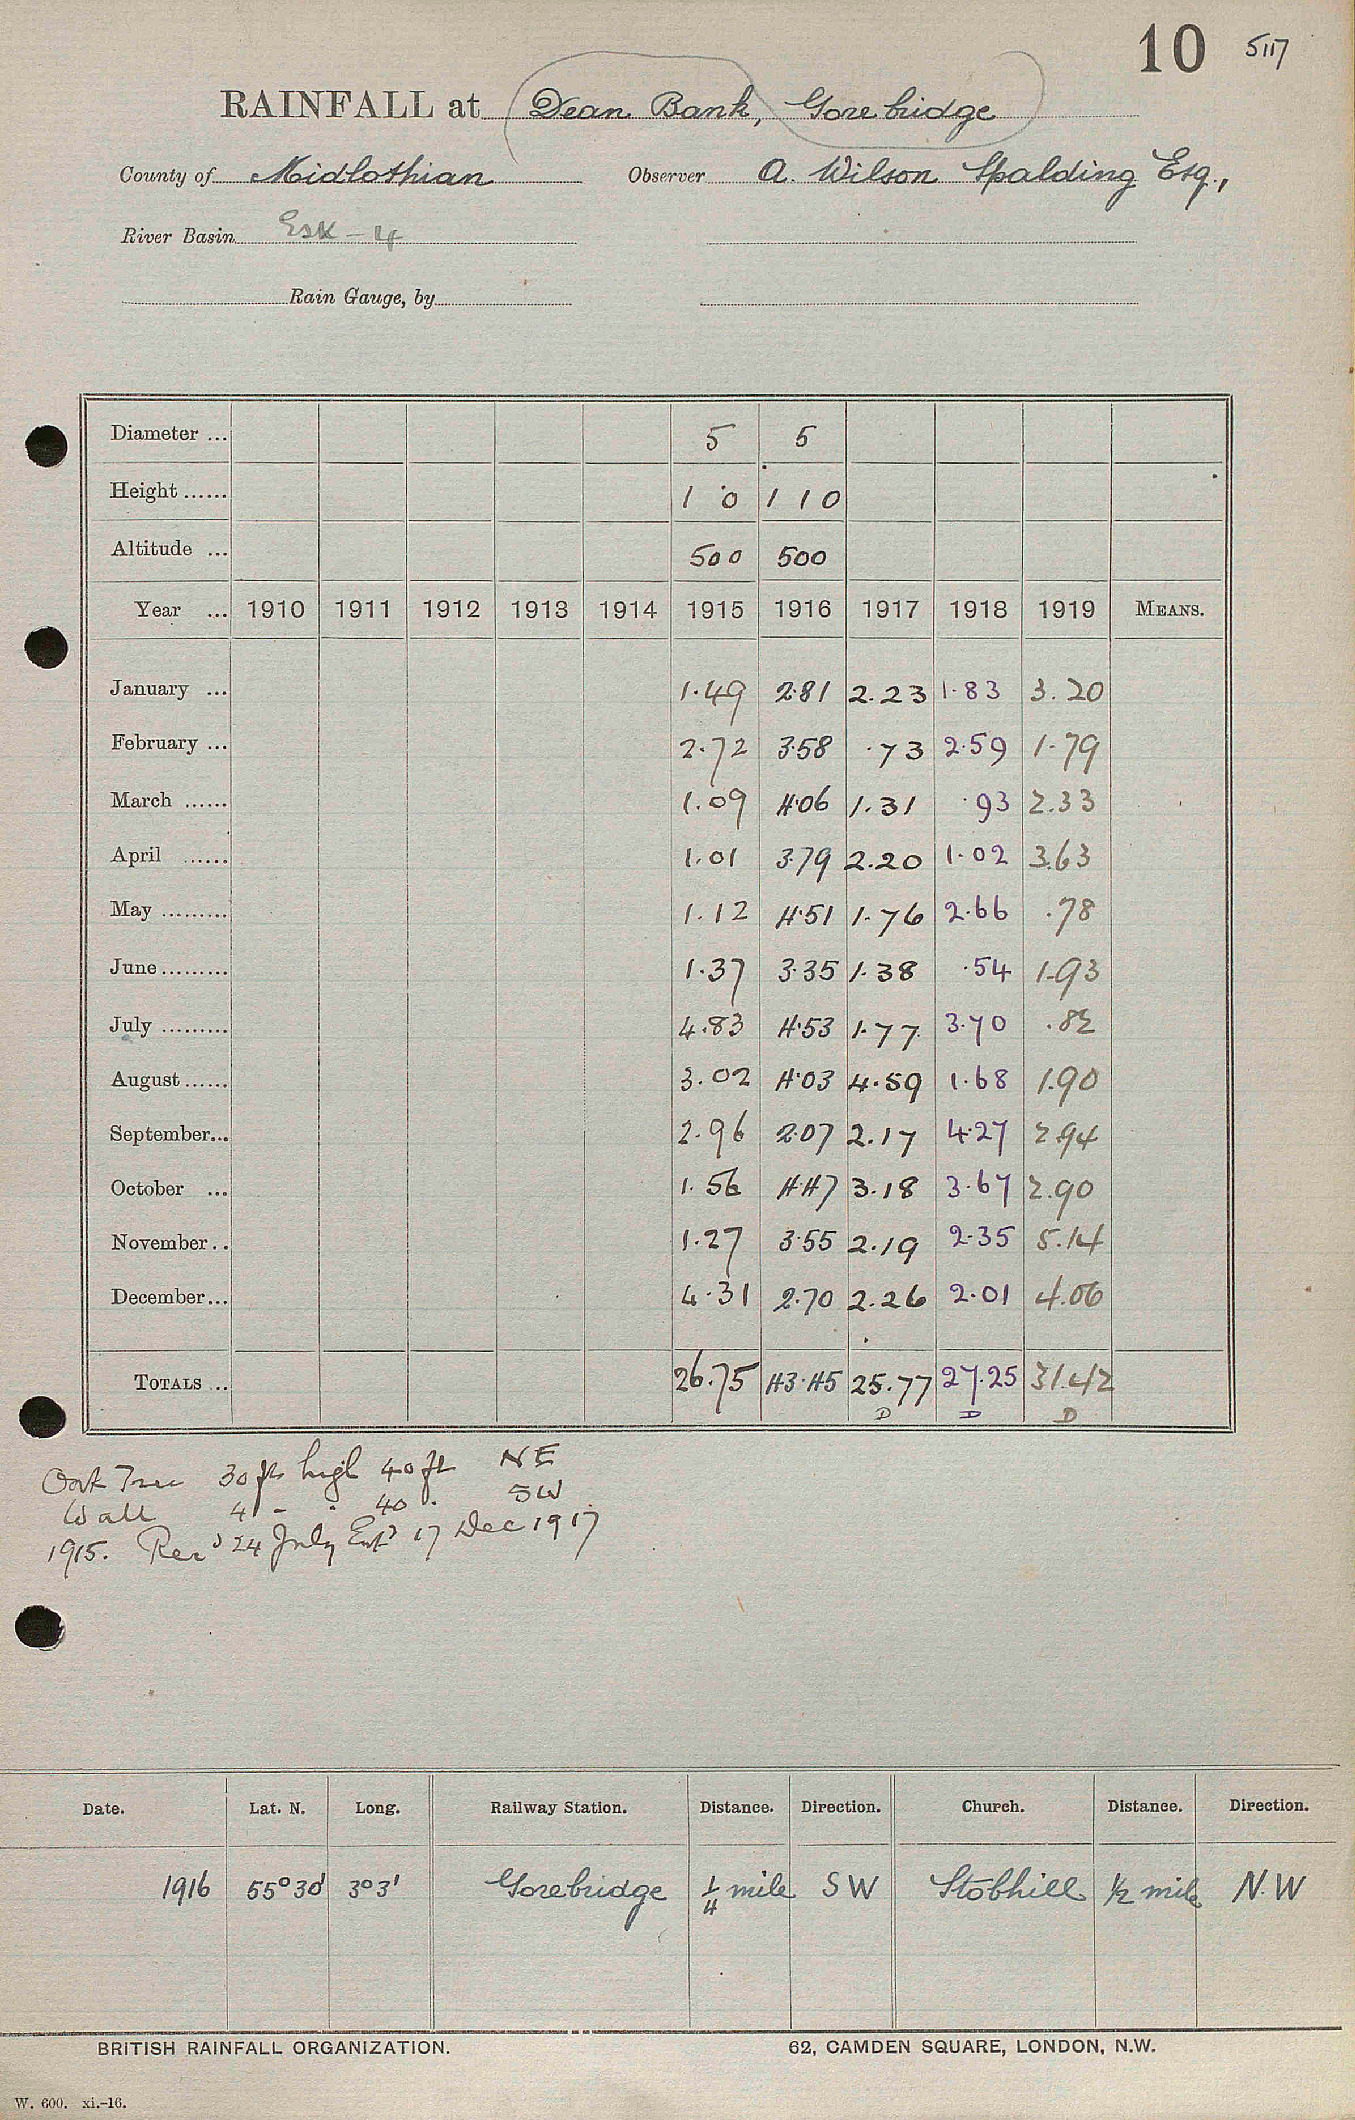 10 5117
RAINFALL at Dean Bank, Gorebridge
County of Midlothian Observer A. Wilson Spalding Esq.,
River Basin Esk - 4
Rain Gauge, by
Diameter ... 5 5
Height ...... 1 0 1 10
Altitude ... 500 500
Year ... 1910 1911 1912 1913 1914 1915 1916 1917 1918 1919 MEANS.
January ... 1.49 2.81 2.23 1.83 3.20
February ... 2.72 3.58 .73 2.59 1.79
March ...... 1.09 4.06 1.31 .93 2.33
April ...... 1.01 3.79 2.20 1.02 3.63
May ......... 1.12 4.51 1.76 2.66 .78
June ......... 1.37 3.35 1.38 .54 1.93
July ......... 4.83 4.53 1.77 3.70 .82
August ...... 3.02 4.03 4.59 1.68 1.90
September... 2.96 2.07 2.17 4.27 2.94
October ... 1.56 4.47 3.18 3.67 2.90
November.. 1.27 3.55 2.19 2.35 5.14
December... 4.31 2.70 2.26 2.01 4.06
TOTALS ... 26.75 43.45 25.77 27.25 31.42
D D D
Oak Tree 30 ft high 40 ft NE
Wall 4 - " 40 " SW
1915. Recd 24 July Entd 17 Dec 1917
Date. Lat. N. Long. Railway Station. Distance. Direction. Church. Distance. Direction.
1916 55°30' 3°3' Gorebridge 1/4 mile SW Stobhill 1/2 mile N.W
BRITISH RAINFALL ORGANIZATION. 62, CAMDEN SQUARE, LONDON, N.W.
W. 600. xi.-16.